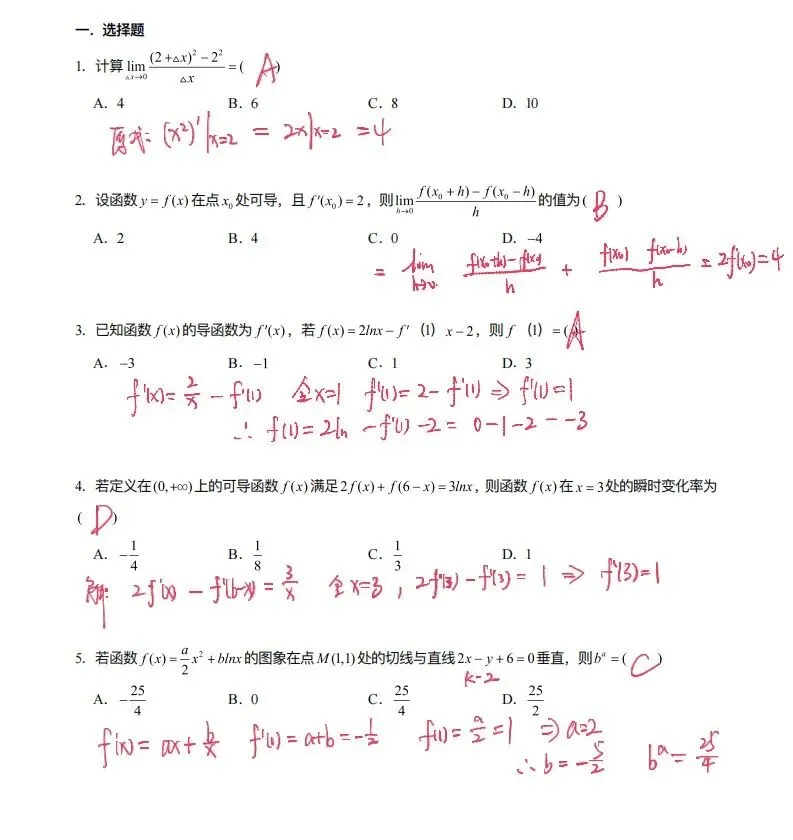 一．选择题
1. 计算 lim_{△x→0} ((2+△x)²－2²)/△x =( A )
A．4 B．6 C．8 D．10
原式：(x²)'|x=2 = 2x|x=2 =4
2. 设函数 y = f(x) 在点 x₀ 处可导，且 f'(x₀) = 2，则 lim_{h→0} (f(x₀ + h) − f(x₀ − h))/h 的值为( B )
A．2 B．4 C．0 D．−4
= lim_{h→0} (f(x₀+h)−f(x₀))/h + (f(x₀) f(x₀−h))/h = 2f'(x₀)=4
3. 已知函数 f(x) 的导函数为 f'(x)，若 f(x) = 2lnx − f'（1）x − 2，则 f（1）=( A
A．−3 B．−1 C．1 D．3
f'(x)= 2/x − f'(1) 令x=1 f'(1)=2− f'(1) ⇒ f'(1)=1
∴ f(1)=2ln −f'(1) −2 = 0−1−2 = −3
4. 若定义在 (0,+∞) 上的可导函数 f(x) 满足 2f(x) + f(6 − x) = 3lnx，则函数 f(x) 在 x = 3 处的瞬时变化率为
( D )
A．−1/4 B．1/8 C．1/3 D．1
2f'(x) − f'(6−x) = 3/x 令x=3，2f'(3) − f'(3) = 1 ⇒ f'(3)=1
5. 若函数 f(x) = a/2 x² + blnx 的图象在点 M(1,1) 处的切线与直线 2x − y + 6 = 0 垂直，则 bᵃ = ( C )
k=2
A．−25/4 B．0 C．25/4 D．25/2
f'(x) = ax + b/x f'(1) = a+b = −1/2 f(1) = a/2 = 1 ⇒ a=2
∴ b = −5/2 bᵃ = 25/4